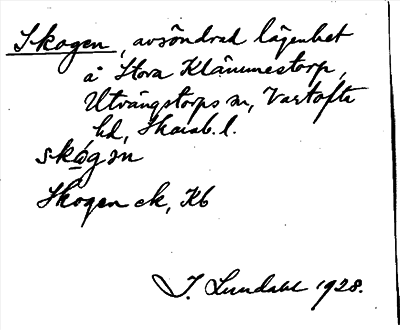 Skogen, avsöndrad lägenhet
å Stora Klämmestorp,
Utvängstorps sn, Vartofta
hd, Skarab. l.
skógən
Skogen ek, Kb
I. Lundahl 1928.